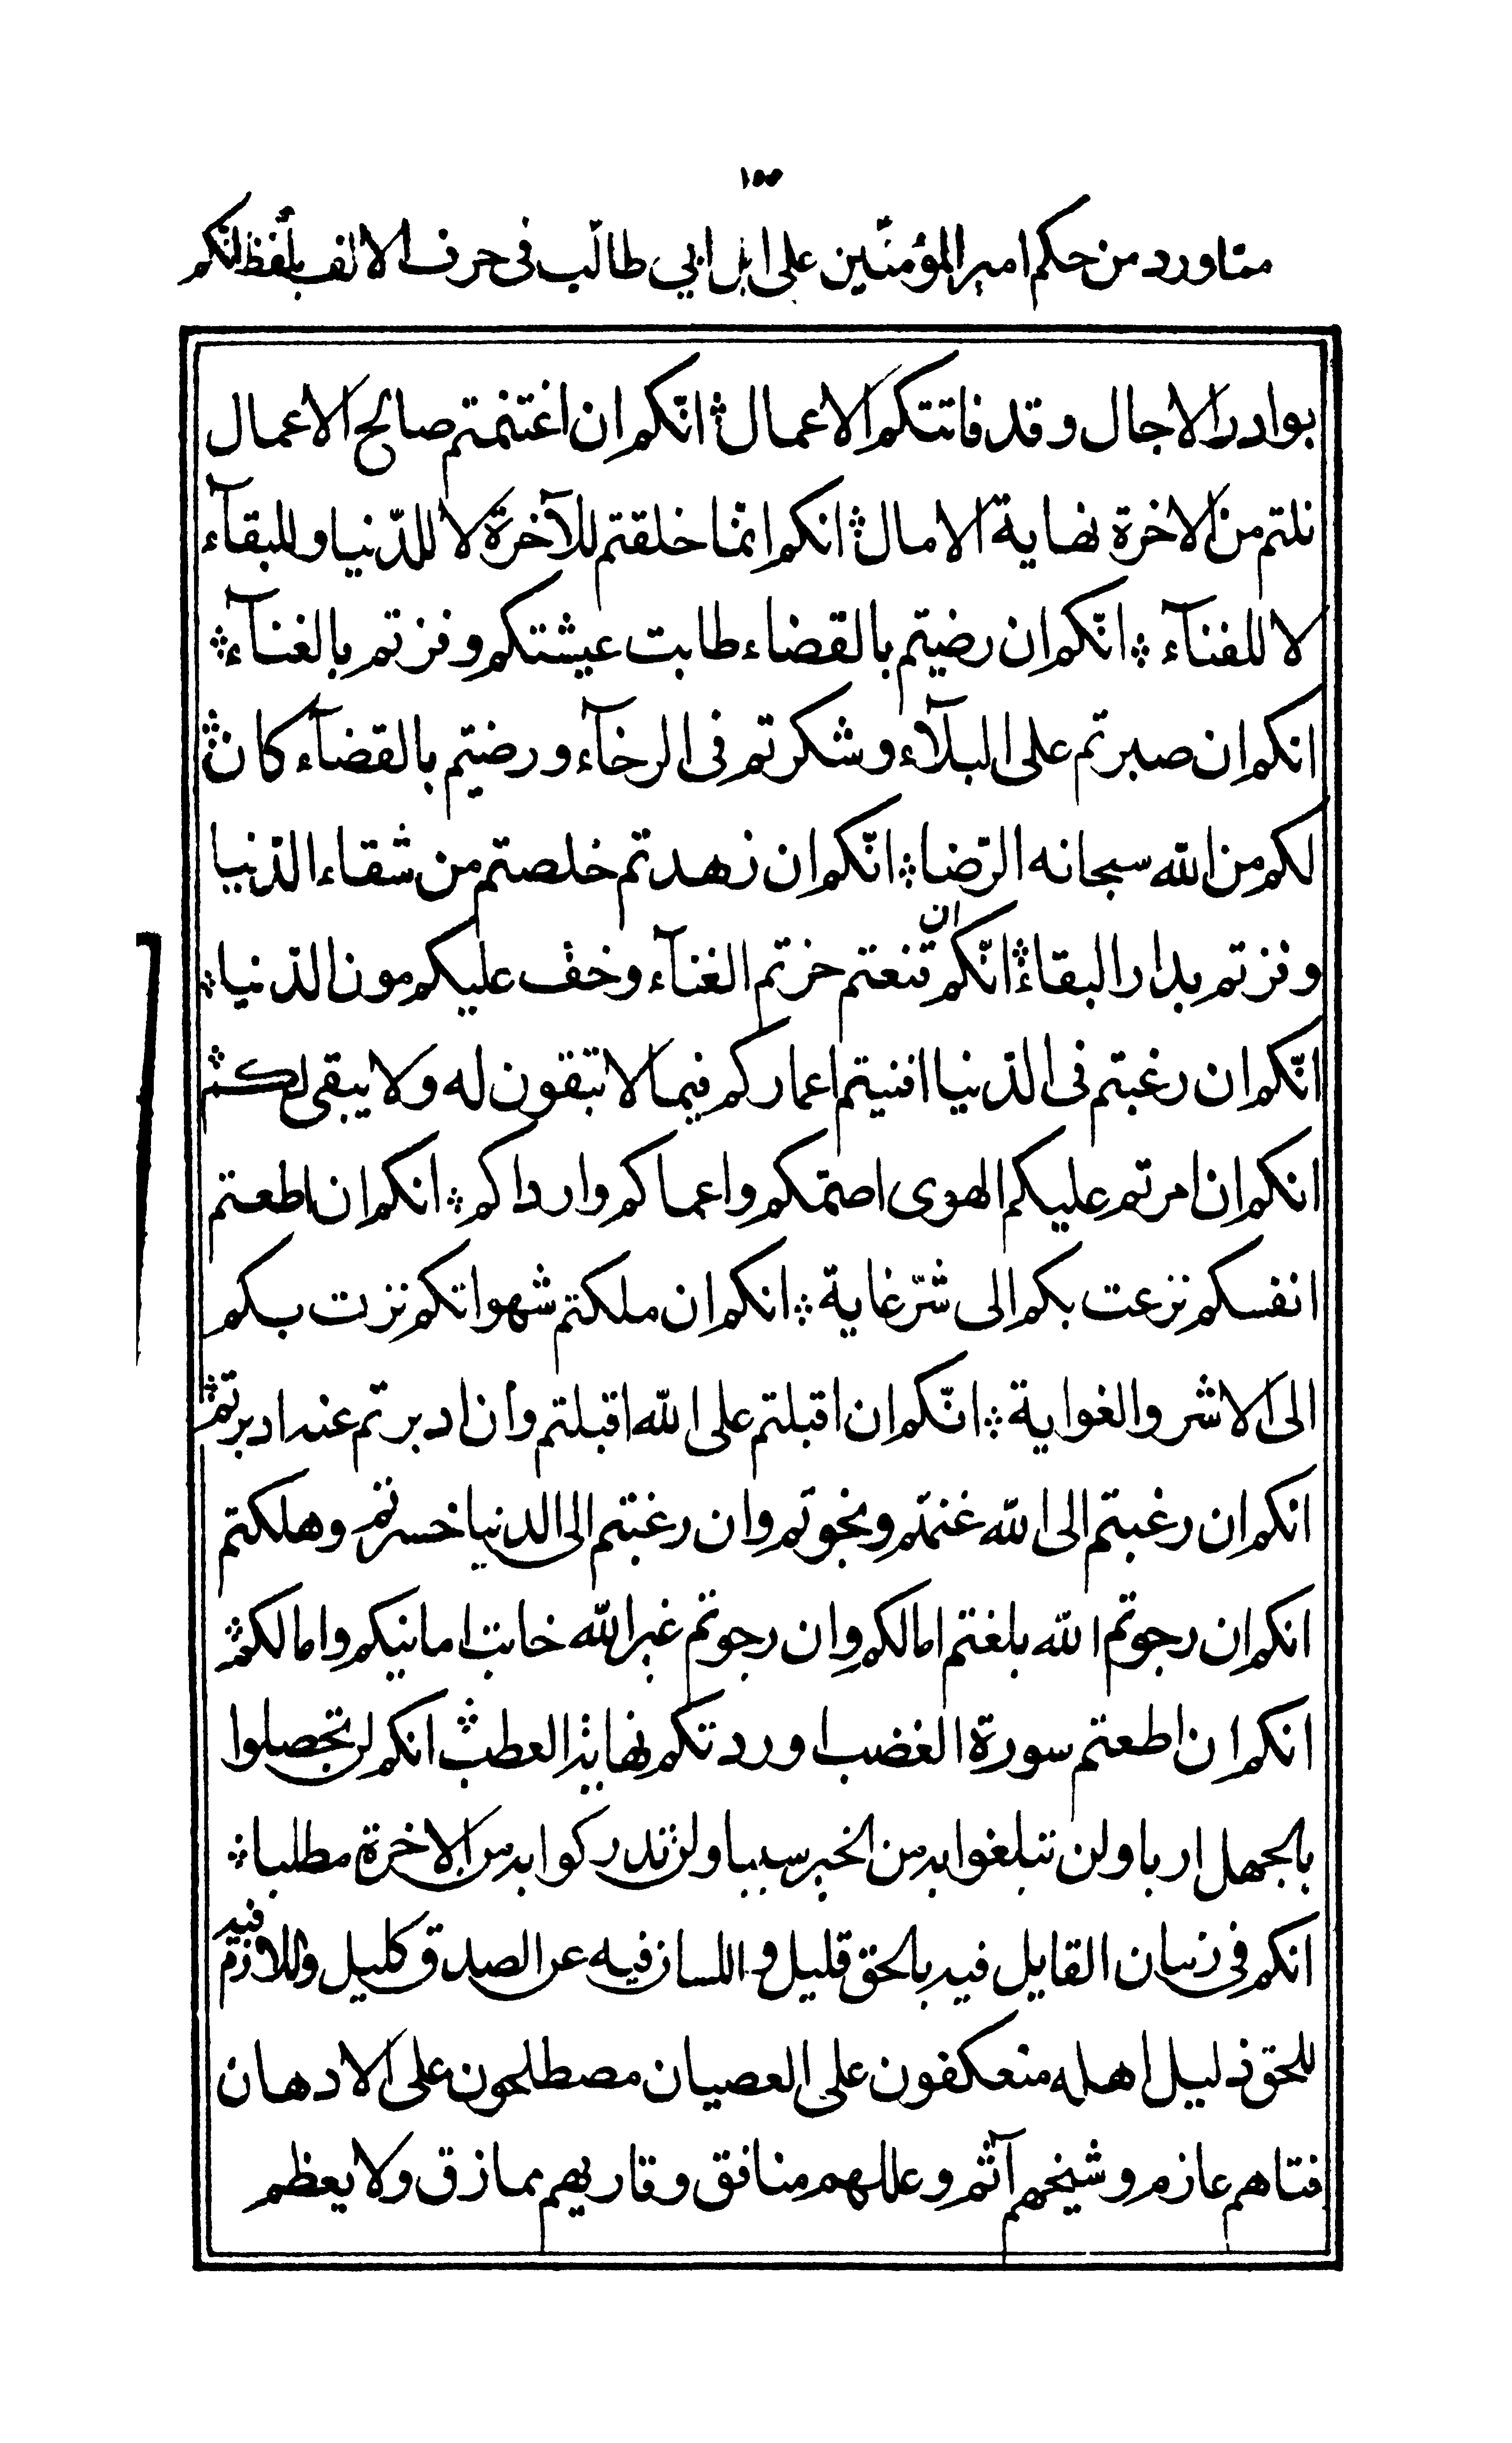 ١٥٥
ممّا ورد من حكم امير المؤمنين على ابن ابي طالب فى حرف الالف بلفظ انّكم
بوادر الاجال وقد فاتتكم الاعمال ؛ انّكم ان اغتنمتم صالح الاعمال
نلتم من الاخرة نهاية الامال ؛ انكم انمّا خلقتم للآخرة لا للدّنيا وللبقآء
لا للفنآء ؛ انّكم ان رضيتم بالقضاء طابت عيشتكم وفزتم بالغنآء ؛
انكم ان صبرتم على البلآء وشكرتم فى الرخآء ورضيتم بالقضآء كان
لكم من الله سبحانه الرّضا ؛ انّكم ان زهدتم خلصتم من شقاء الدّنيا
وفزتم بدار البقاء ؛ انّكم ان قنعتم حزتم الغنآء وخفّ عليكم مون الدّنيا ؛
انّكم ان رغبتم فى الدّنيا افنيتم اعماركم فيما لا تبقون له ولا يبقى لكم ؛
انكم ان امرتم عليكم الهوى اصمّكم واعماكم وارداكم ؛ انكم ان اطعتم
انفسكم نزعت بكم الى شرّ غاية ؛ انكم ان ملكتم شهواتكم نزت بكم
الى الاشر والغواية ؛ انّكم ان اقبلتم على الله اقبلتم وان ادبرتم عنه ادبرتم ؛
انكم ان رغبتم الى الله غنمتم ونجوتم وان رغبتم الى الدنيا خسرتم وهلكتم
انكم ان رجوتم الله بلغتم امالكم وان رجوتم غير الله خابت امانيكم وامالكم ؛
انكم ان اطعتم سورة الغضب اوردتكم نهاية العطب ؛ انكم لن تحصلوا
بالجهل اربا ولن تبلغوا به من الخير سببا ولن تدركوا به من الاخرة مطلبا ؛
انكم فى زمان القايل فيه بالحق قليل و اللسان فيه عن الصدق كليل واللازم فيه
للحق ذليل اهله منعكفون على العصيان مصطلحون على الادهان
فتاهم عازم وشيخهم آثم وعالمهم منافق وقاريهم ممازق ولا يعظم